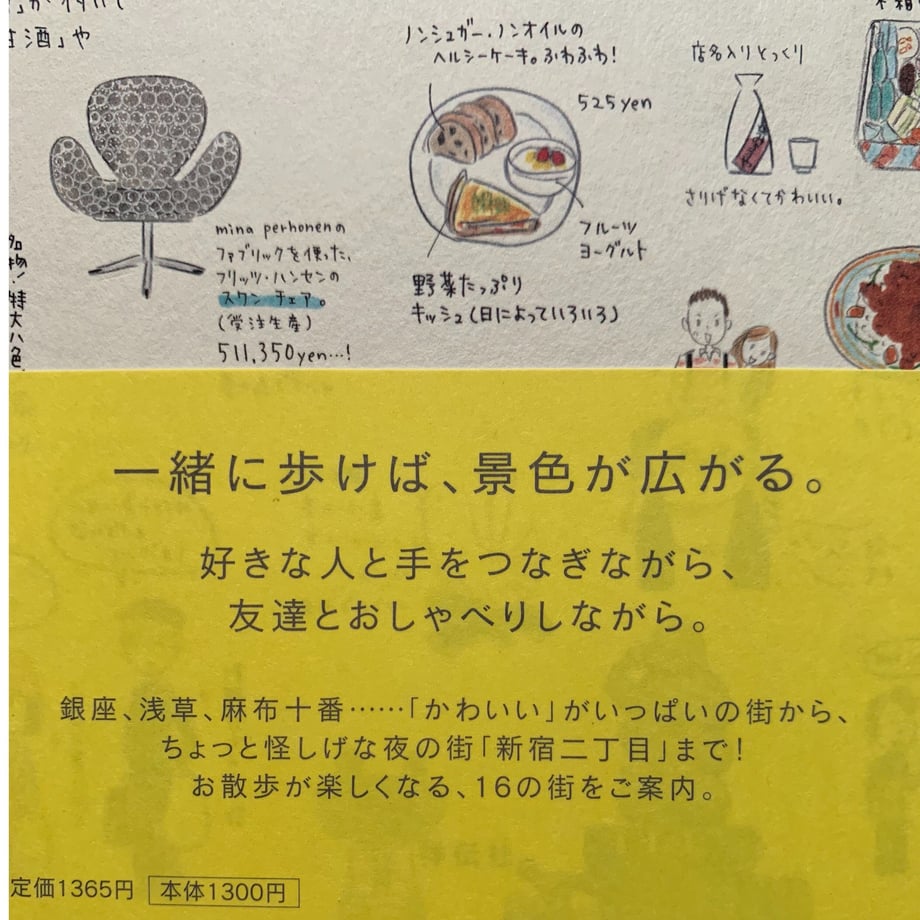 甘酒」や
ノンシュガー・ノンオイルの
ヘルシーケーキ。ふわふわ!
525yen
店名入りとっくり
さりげなくてかわいい。
mina perhonenの
ファブリックを使った、
フリッツ・ハンセンの
スワン チェア。
(受注生産)
511,350yen…!
フルーツ
ヨーグルト
野菜たっぷり
キッシュ(日によっていろいろ)
名物!特大八色
一緒に歩けば、景色が広がる。
好きな人と手をつなぎながら、
友達とおしゃべりしながら。
銀座、浅草、麻布十番……「かわいい」がいっぱいの街から、
ちょっと怪しげな夜の街「新宿二丁目」まで!
お散歩が楽しくなる、16の街をご案内。
定価1365円 本体1300円